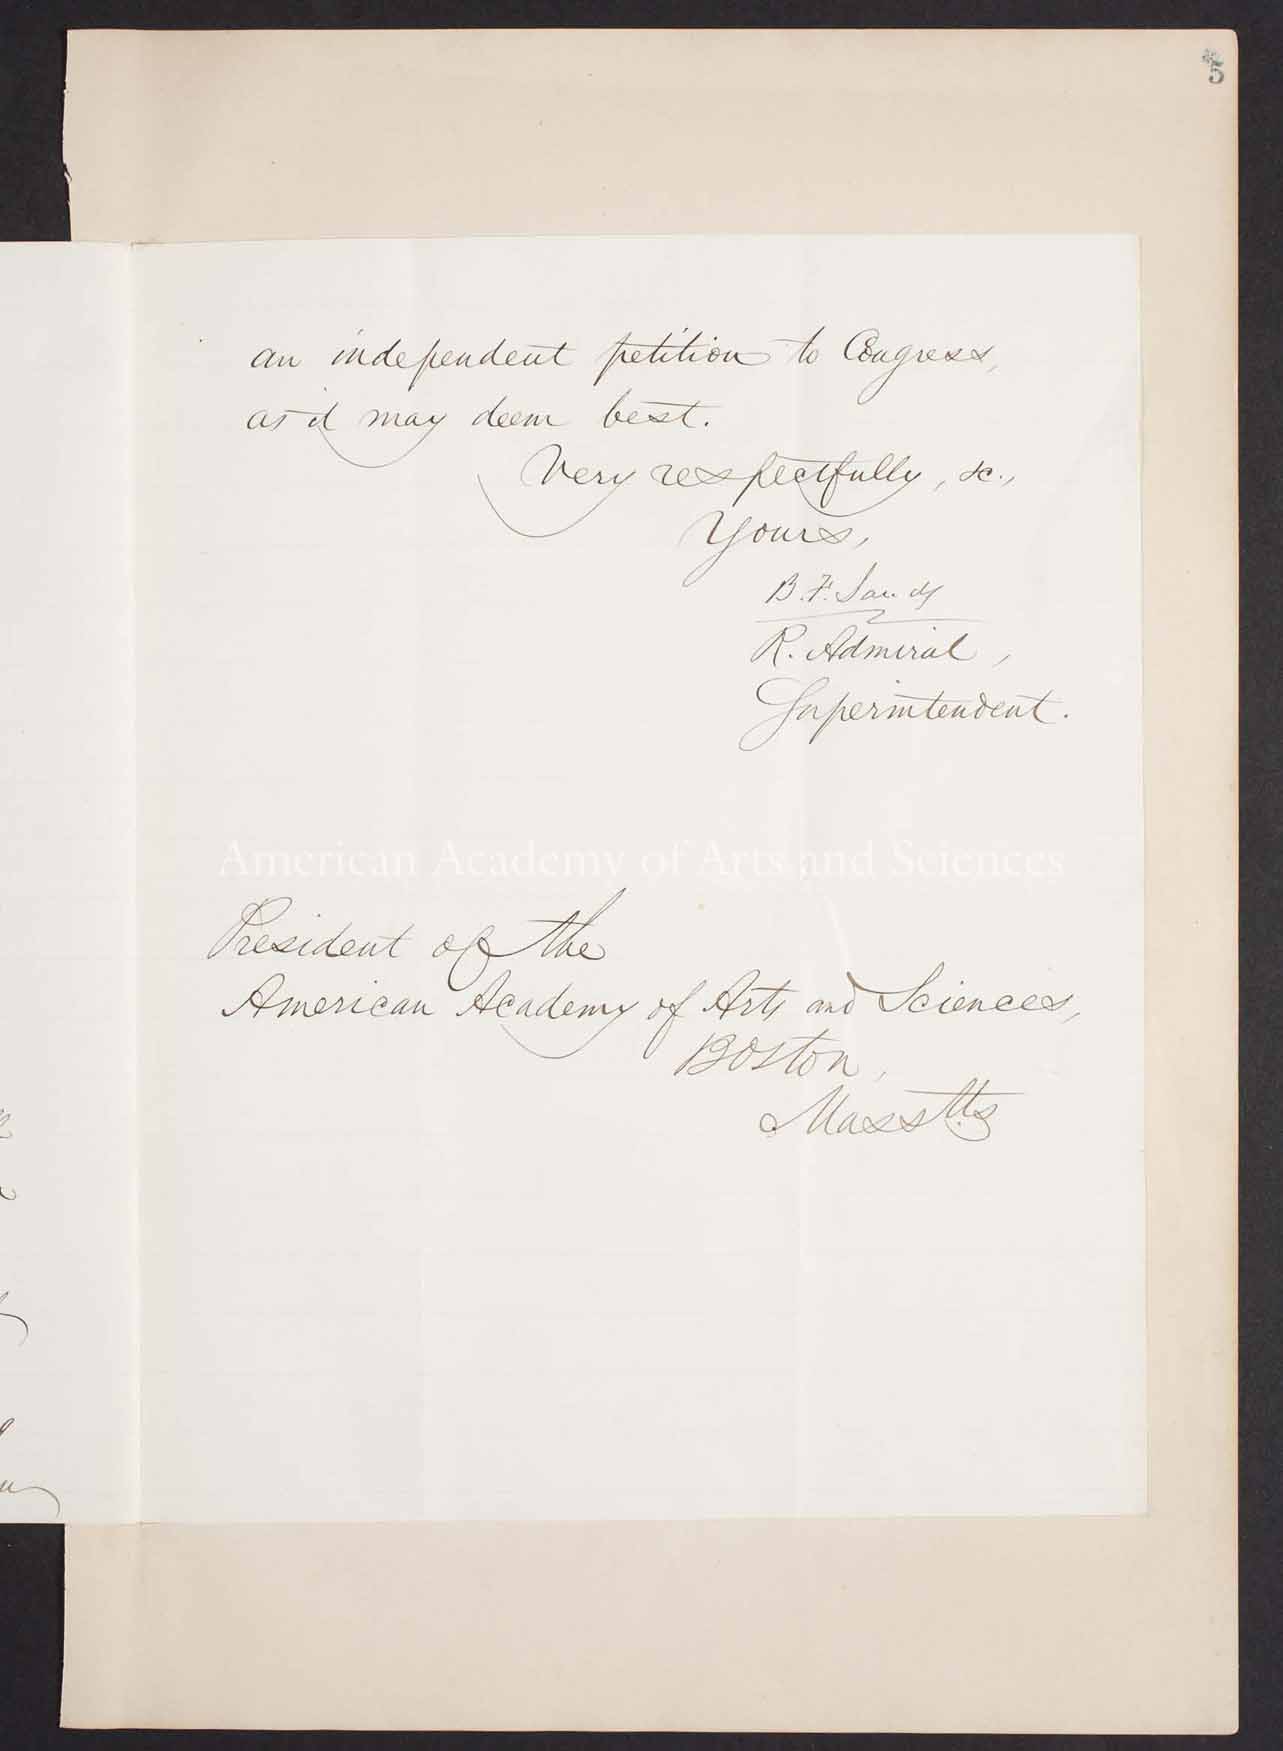 5
an independent petition to Congress,
as it may deem best.
Very respectfully, &c.,
Yours,
B. F. Sands
R. Admiral,
Superintendent.
American Academy of Arts and Sciences
President of the
American Academy of Arts and Sciences,
Boston,
Masstts